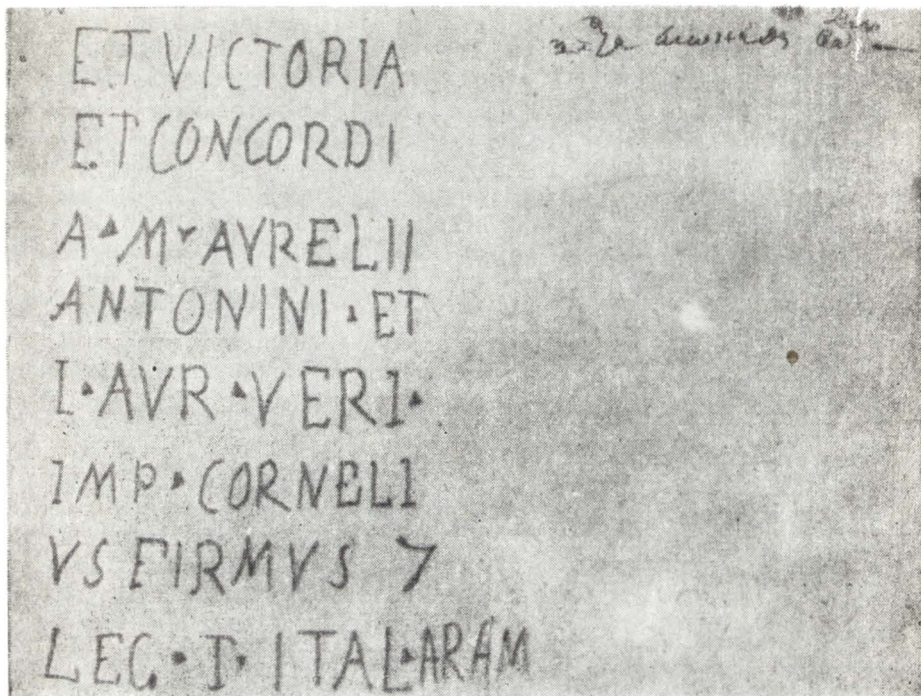 ET VICTORIA
ET CONCORDI
A▴M▾AVRELII
ANTONINI▴ET
L▴AVR▴VERI▴
IMP▴CORNELI
VS FIRMVS 7
LEG▴I▴ITAL▴ARAM